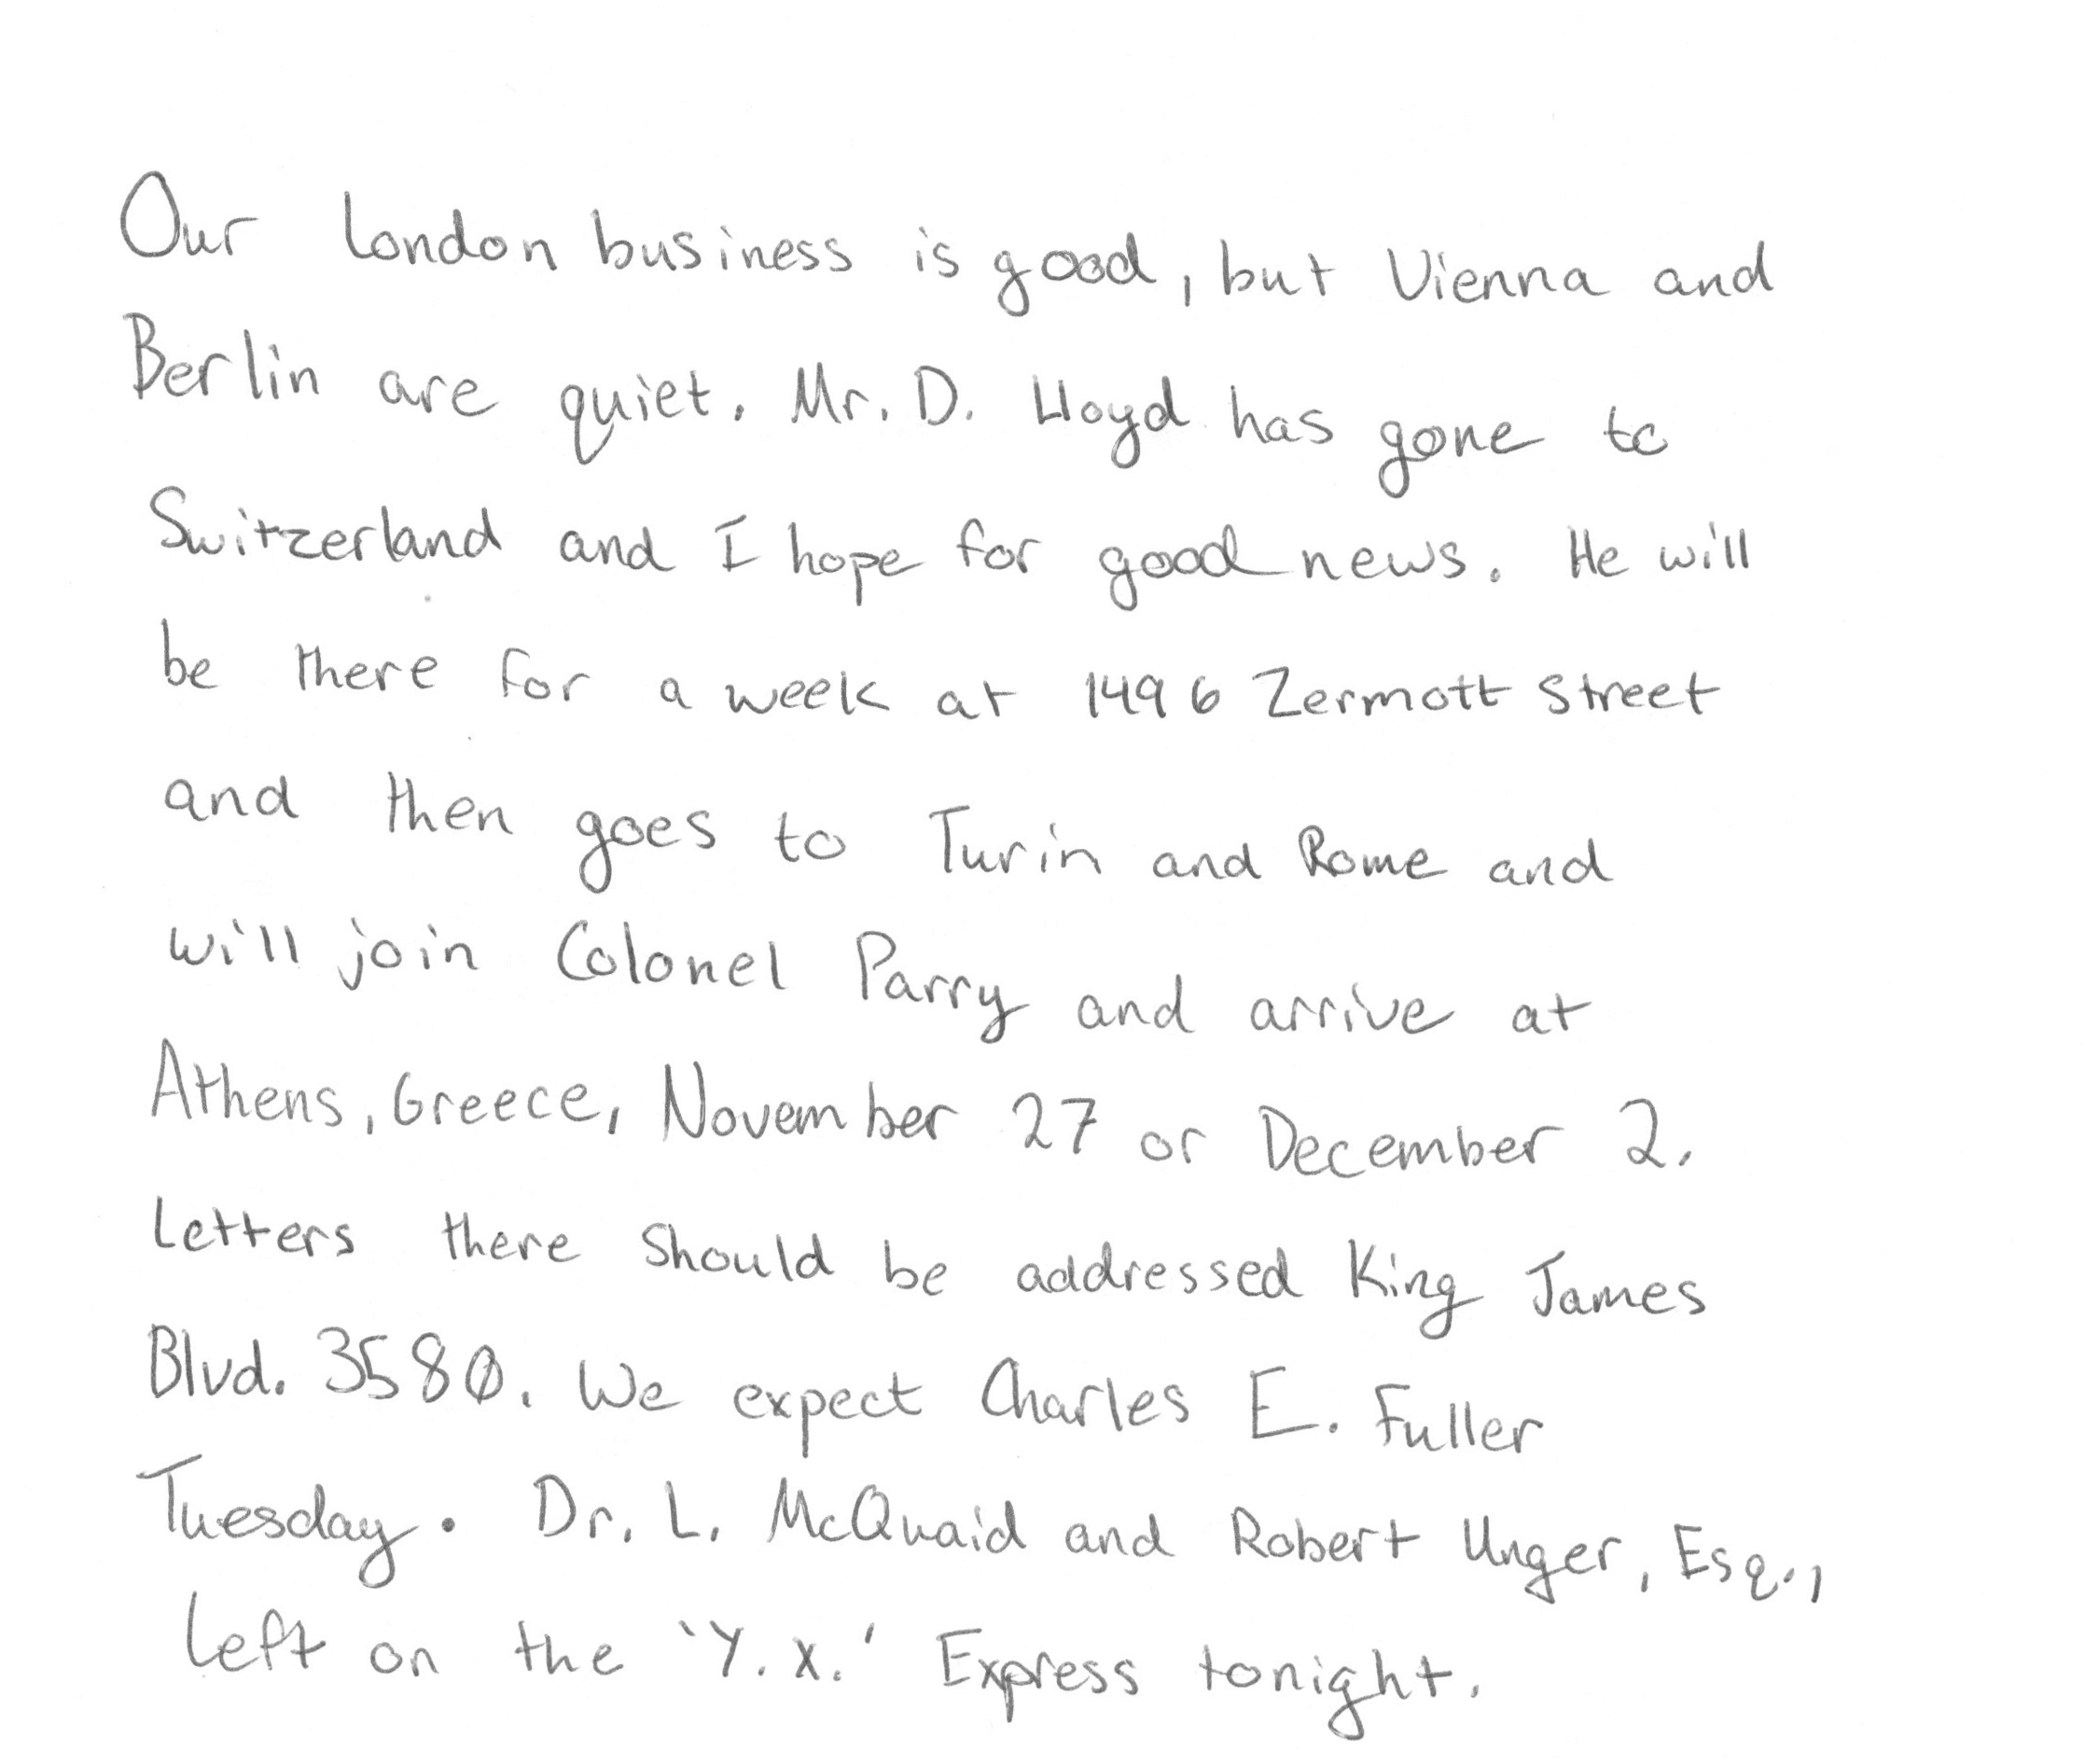 Our London business is good, but Vienna and
Berlin are quiet. Mr. D. Lloyd has gone to
Switzerland and I hope for good news. He will
be there for a week at 1496 Zermott Street
and then goes to Turin and Rome and
will join Colonel Parry and arrive at
Athens, Greece, November 27 or December 2.
Letters there should be addressed King James
Blvd. 3580. We expect Charles E. Fuller
Tuesday. Dr. L. McQuaid and Robert Unger, Esq.,
left on the 'Y.X.' Express tonight.